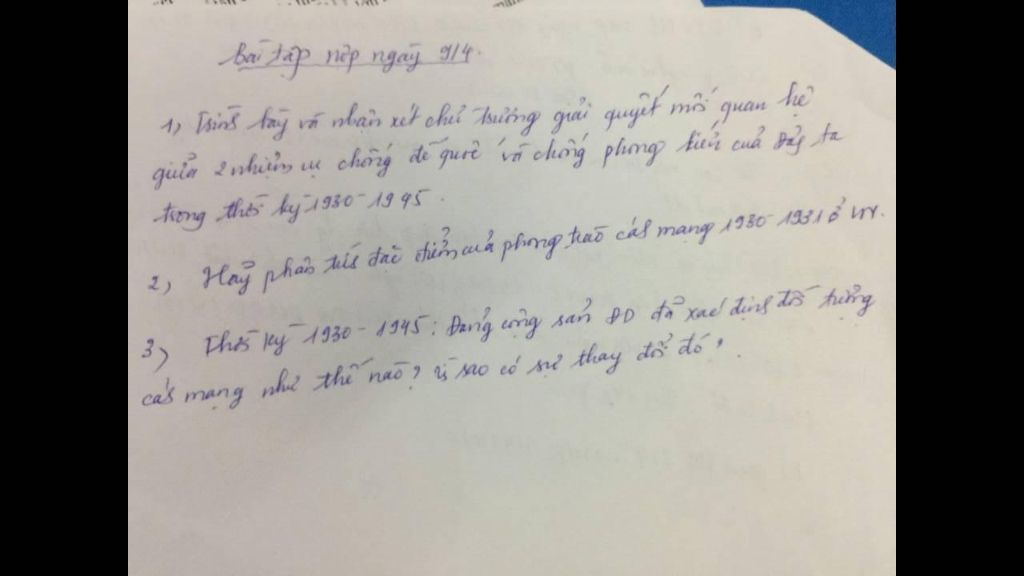 Bài tập nộp ngày 9/4.
1, Trình bày và nhận xét chủ trương giải quyết mối quan hệ
giữa 2 nhiệm vụ chống đế quốc và chống phong kiến của Đảng ta
trong thời kỳ 1930-1945.
2, Hãy phân tích đặc điểm của phong trào cách mạng 1930-1931 ở VN.
3, Thời kỳ 1930-1945: Đảng cộng sản ĐD đã xác định đối tượng
cách mạng như thế nào? Vì sao có sự thay đổi đó?